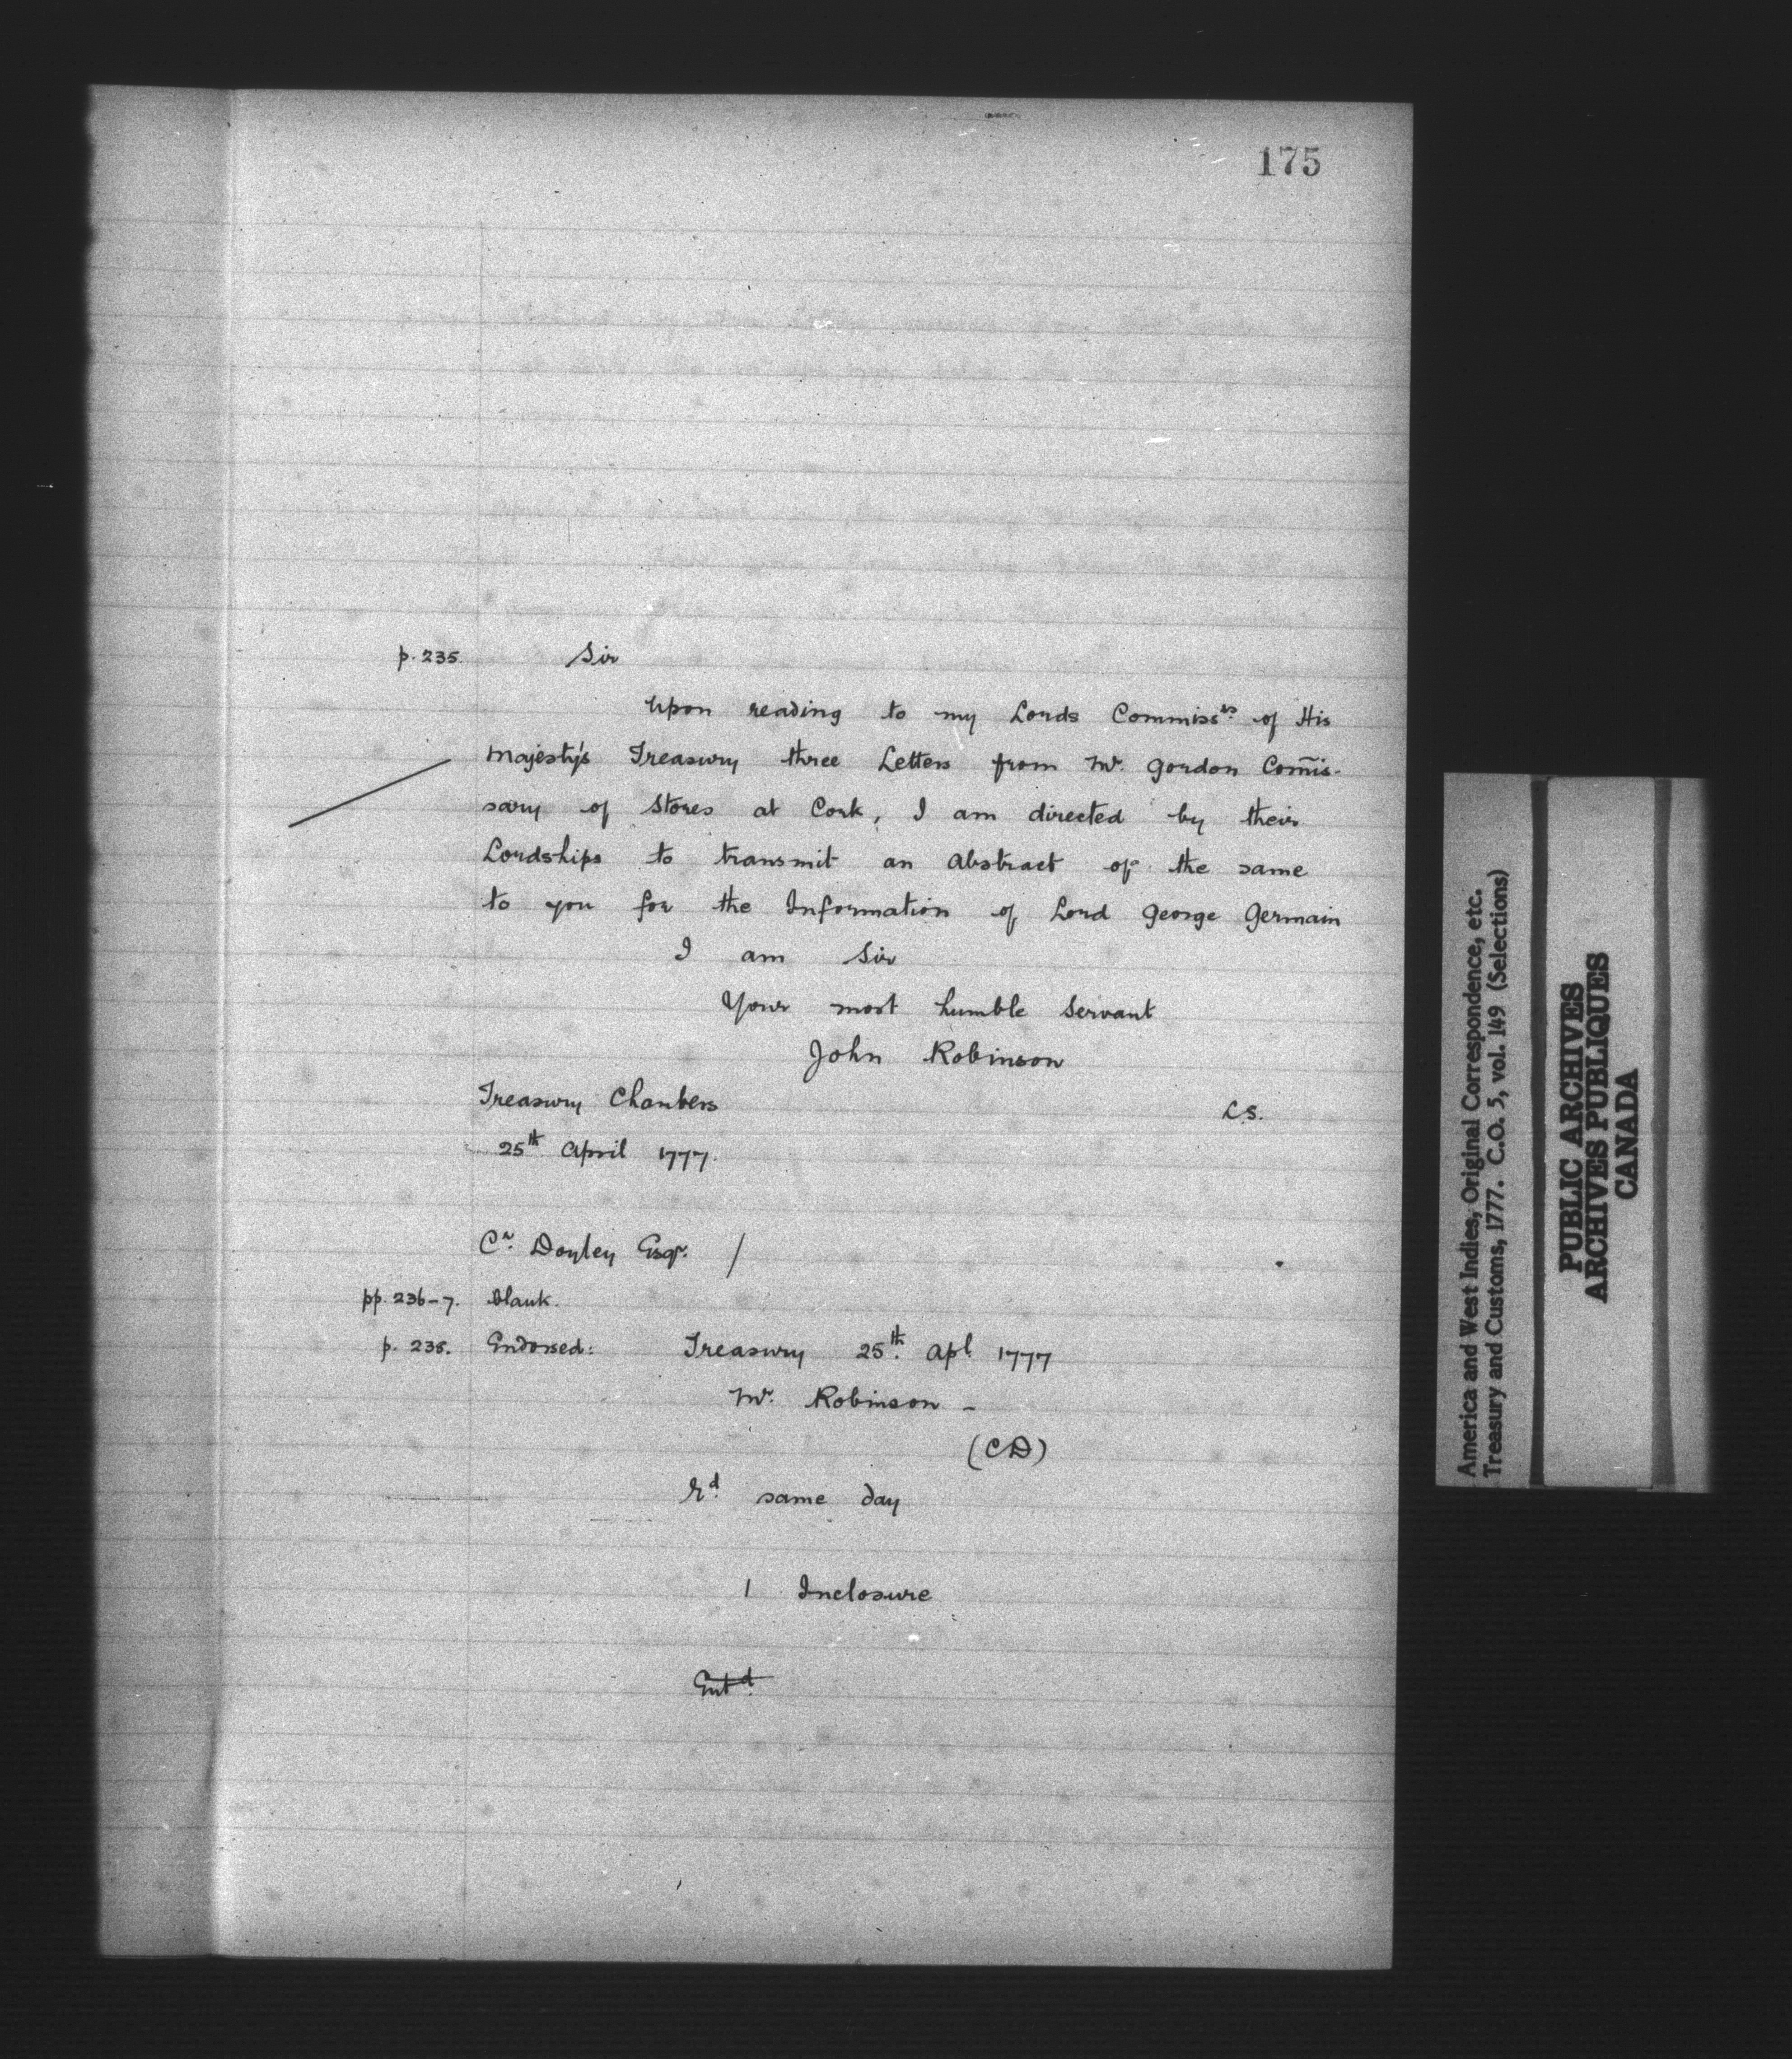 175
p. 235. Sir
Upon reading to my Lords Commiss.rs of His
Majesty's Treasury three Letters from Mr. Gordon Com̄is-
sary of Stores at Cork, I am directed by their
Lordships to transmit an Abstract of the same
to you for the Information of Lord George Germain
I am Sir
Your most humble Servant
John Robinson
Treasury Chambers
L.S.
25th April 1777.
Cr. Doyley Esqr. /
pp. 236-7. blank.
p. 238. Endorsed: Treasury 25th. Apl. 1777
Mr. Robinson –
(CD)
Rd. same day
1 Inclosure
Entd.
America and West Indies, Original Correspondence, etc.
Treasury and Customs, 1777. C.O. 5, vol. 149 (Selections)
PUBLIC ARCHIVES
ARCHIVES PUBLIQUES
CANADA